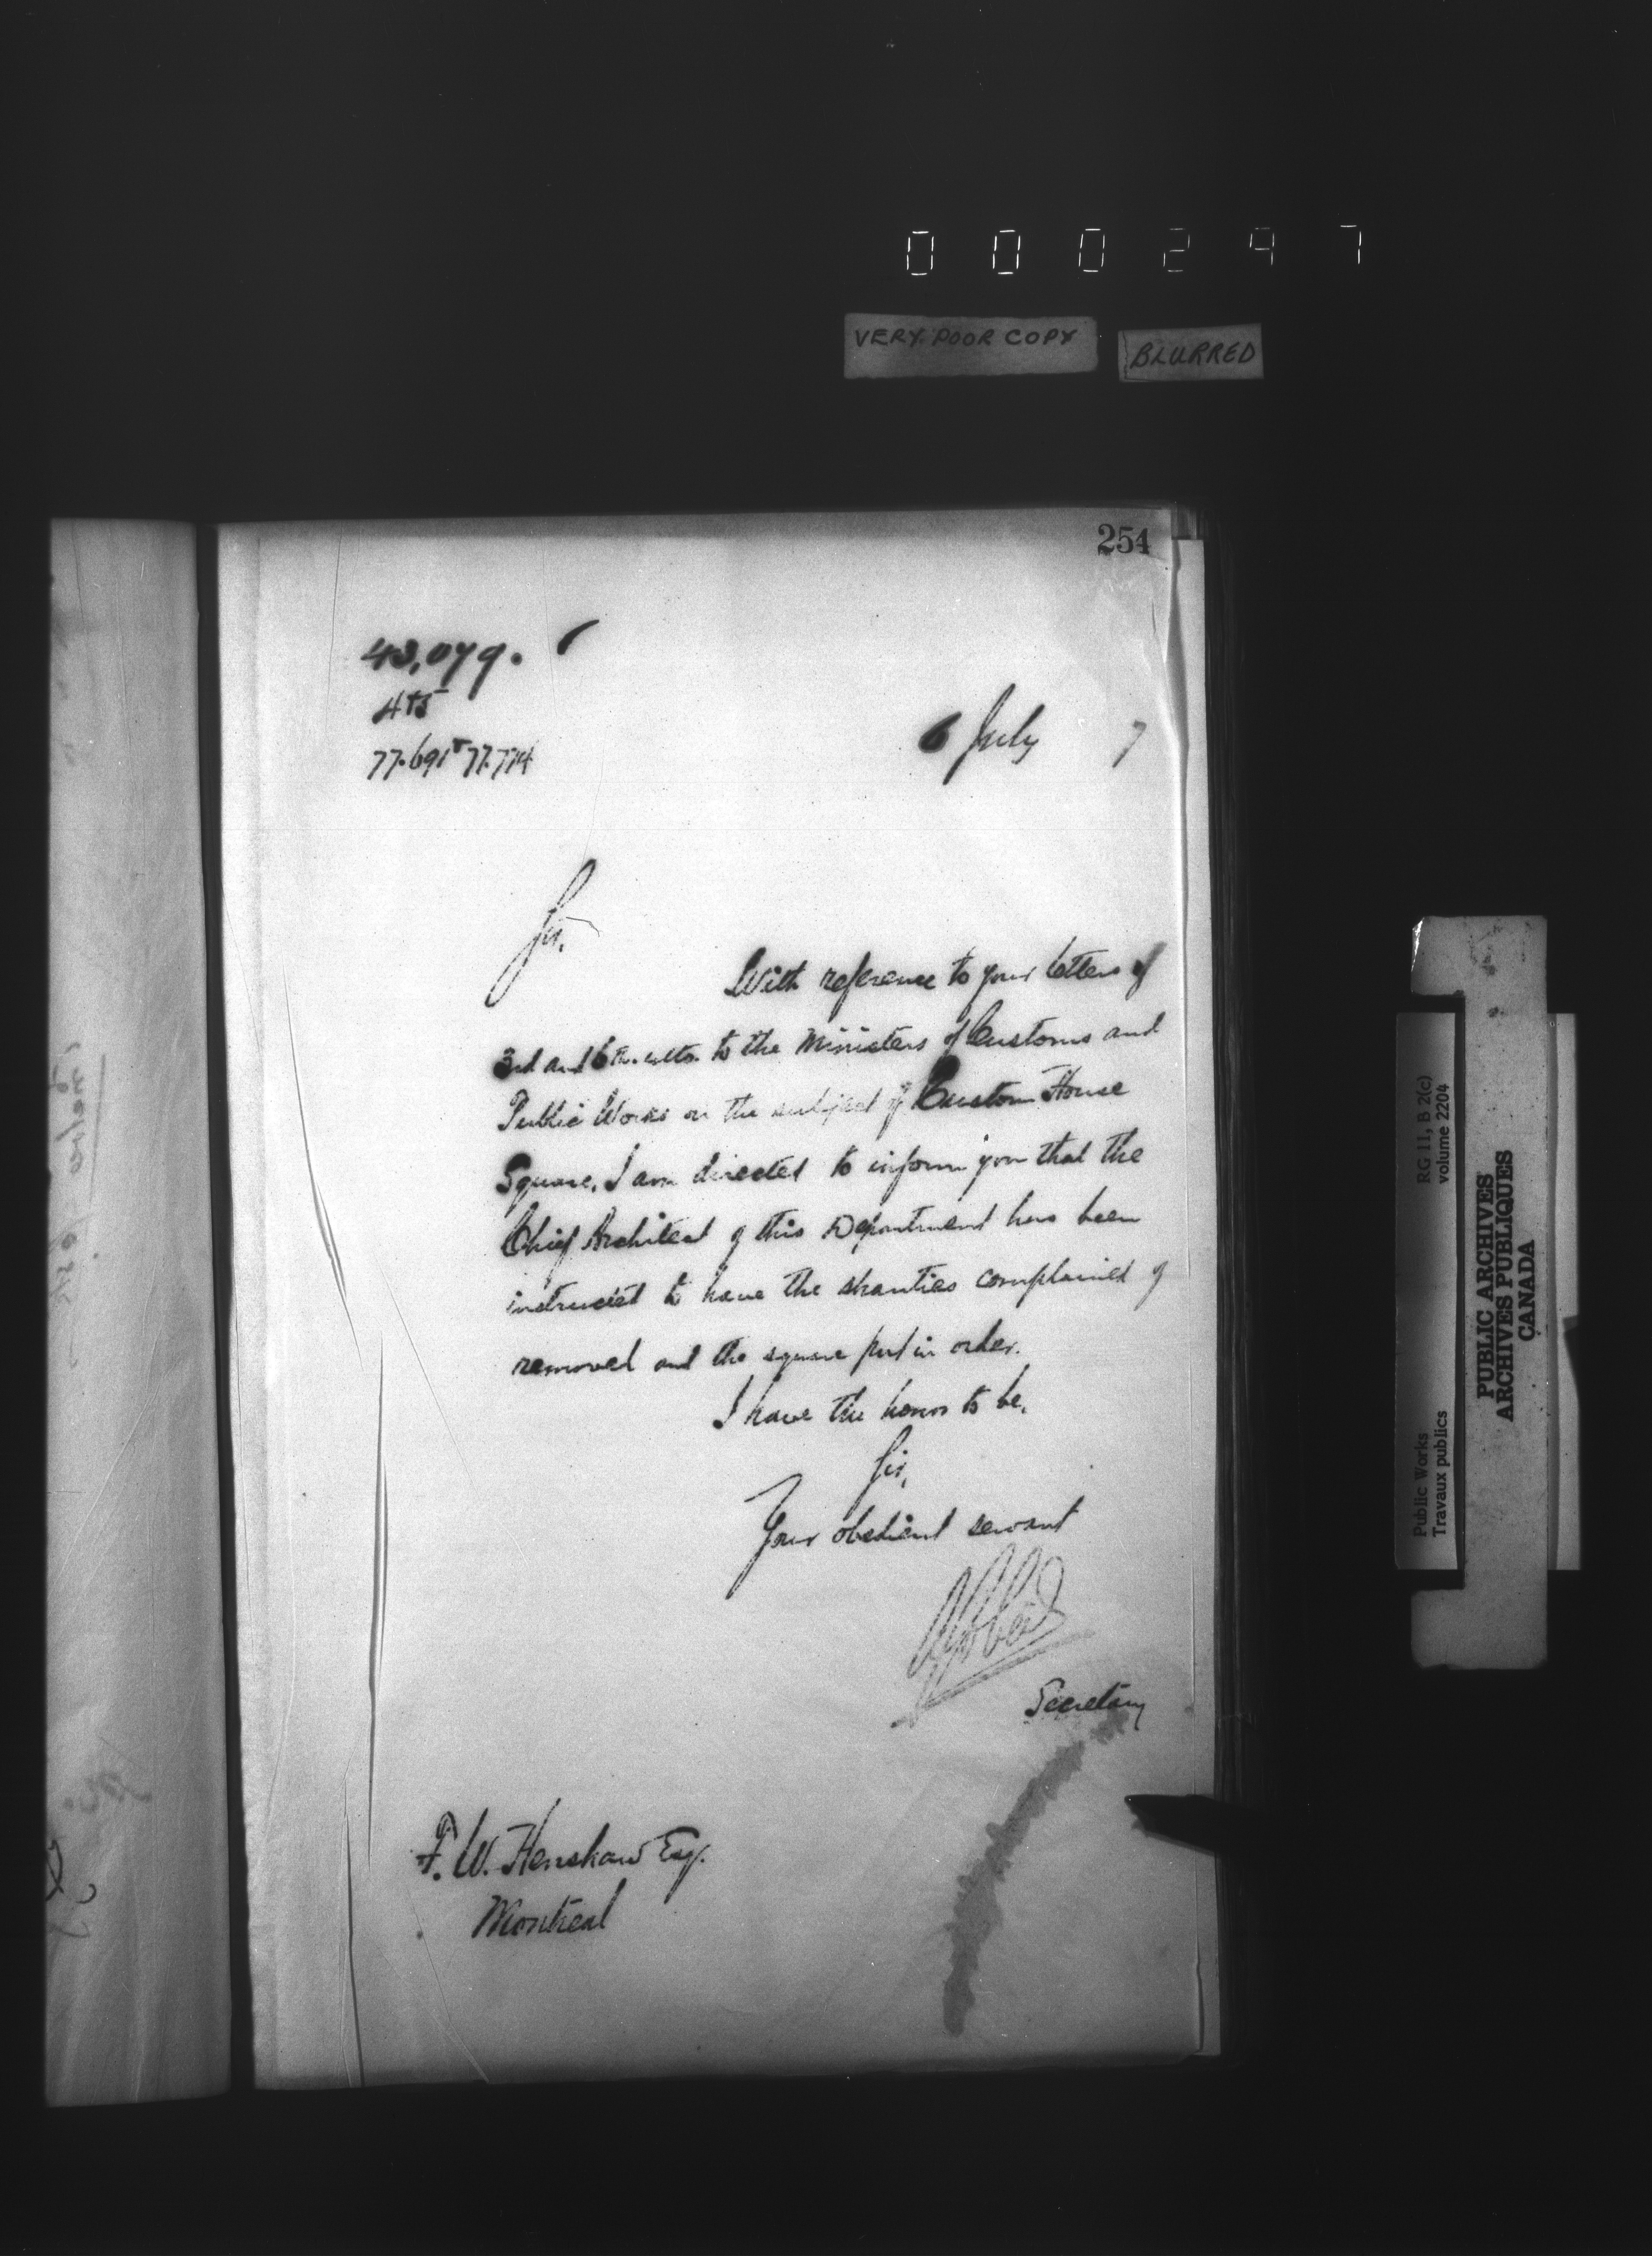 000297
VERY POOR COPY
BLURRED
254
43,079.
4+5
77.691 & 77.774
6 July 7
Sir,
With reference to your letters of
3rd and 6th ulto. to the Ministers of Customs and
Public Works on the subject of Custom House
Square, I am directed to inform you that the
Chief Architect of this Department has been
instructed to have the shanties complained of
removed and the square put in order.
I have the honor to be,
Sir,
Your obedient servant
Secretary
F. W. Henshaw Esq.
Montreal
RG 11, B 2(c)
volume 2204
Public Works
Travaux publics
PUBLIC ARCHIVES
ARCHIVES PUBLIQUES
CANADA